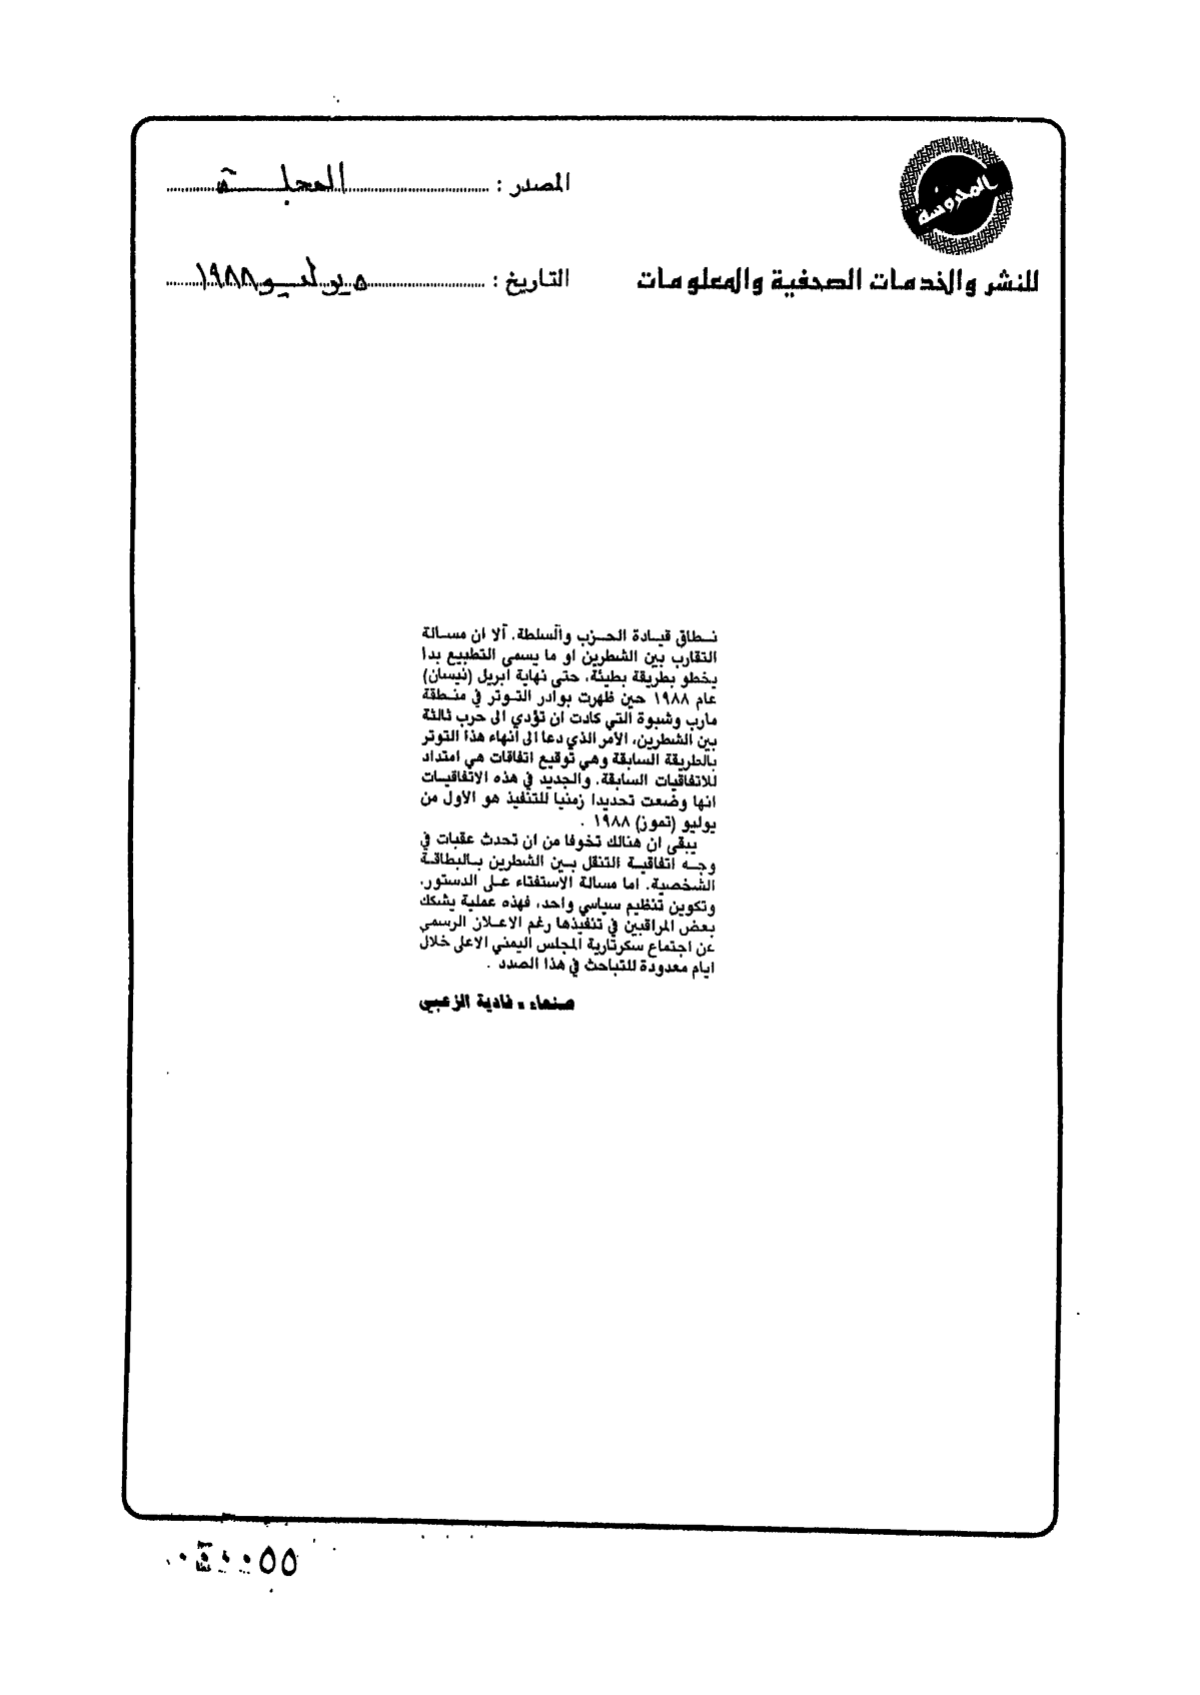 المحروسة
للنشر والخدمات الصحفية والمعلومات
المصدر : المجلة
التاريخ : ٥ يوليو ١٩٨٨
نطاق قيادة الحزب والسلطة. ألا ان مسالة
التقارب بين الشطرين او ما يسمى التطبيع بدا
يخطو بطريقة بطيئة، حتى نهاية ابريل (نيسان)
عام ١٩٨٨ حين ظهرت بوادر التوتر في منطقة
مارب وشبوة التي كادت ان تؤدي الى حرب ثالثة
بين الشطرين، الأمر الذي دعا الى انهاء هذا التوتر
بالطريقة السابقة وهي توقيع اتفاقات هي امتداد
للاتفاقيات السابقة. والجديد في هذه الاتفاقيات
انها وضعت تحديدا زمنيا للتنفيذ هو الأول من
يوليو (تموز) ١٩٨٨ .
يبقى ان هنالك تخوفا من ان تحدث عقبات في
وجه اتفاقية التنقل بين الشطرين بالبطاقة
الشخصية. اما مسالة الاستفتاء على الدستور،
وتكوين تنظيم سياسي واحد، فهذه عملية يشكك
بعض المراقبين في تنفيذها رغم الاعلان الرسمي
عن اجتماع سكرتارية المجلس اليمني الاعلى خلال
ايام معدودة للتباحث في هذا الصدد .
صنعاء - فادية الزعبي